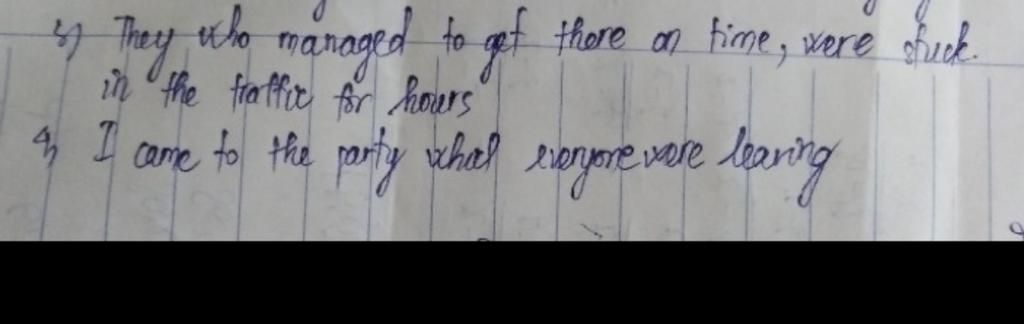 3) They who managed to get there on time, were stuck.
in the traffic for hours
4) I came to the party everyone were leaving